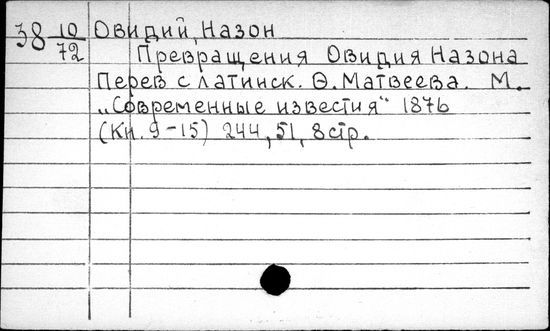 38 10/72 Овидий, Назон
Превращения Овидия Назона
Перев с латинск. Ѳ. Матвеева. М.
„Современные известия" 1876
(Кн. 9-15) 244, 51, 8 стр.